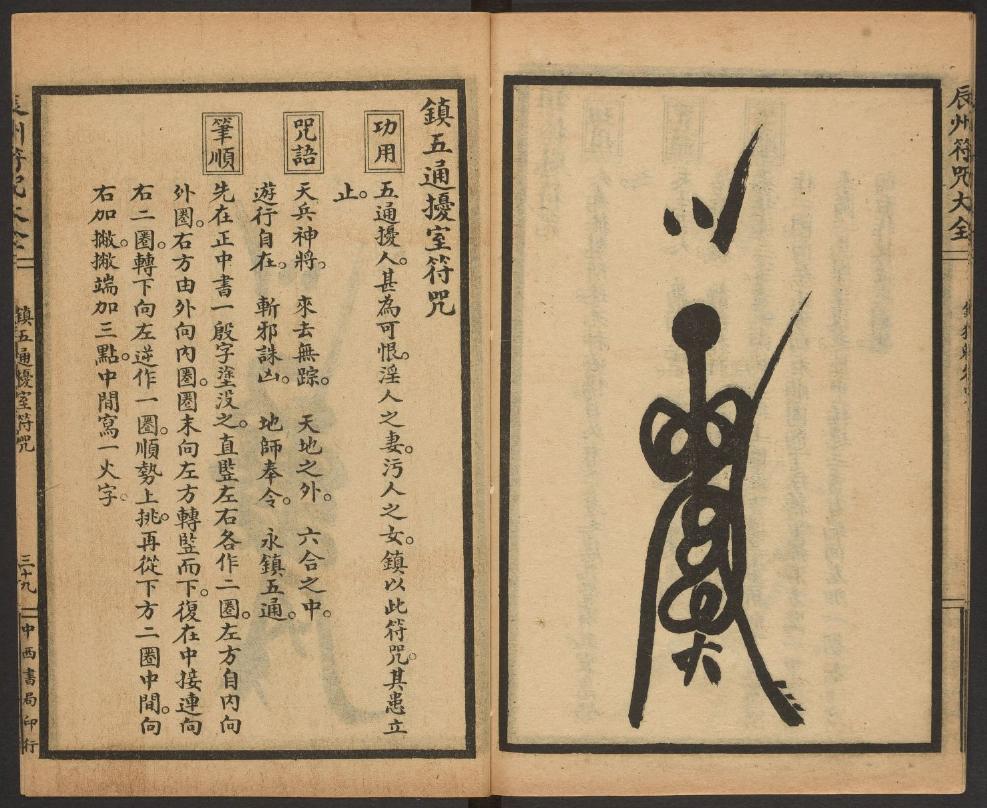 辰州符咒大全
鎮五通擾室符咒
功用
五通擾人。甚為可恨。淫人之妻。污人之女。鎮以此符咒。其患立
止。
咒語
天兵神將。 來去無踪。 天地之外。 六合之中。
遊行自在。 斬邪誅凶。 地師奉令。 永鎮五通。
筆順
先在正中書一殷字塗没之。直豎左右各作二圈。左方自內向
外圈。右方由外向內圈。圈末向左方轉豎而下。復在中接連向
右二圈。轉下向左逆作一圈。順勢上挑。再從下方二圈中間。向
右加撇。撇端加三點。中間寫一火字。
鎮五通擾室符咒
三十九
中西書局印行